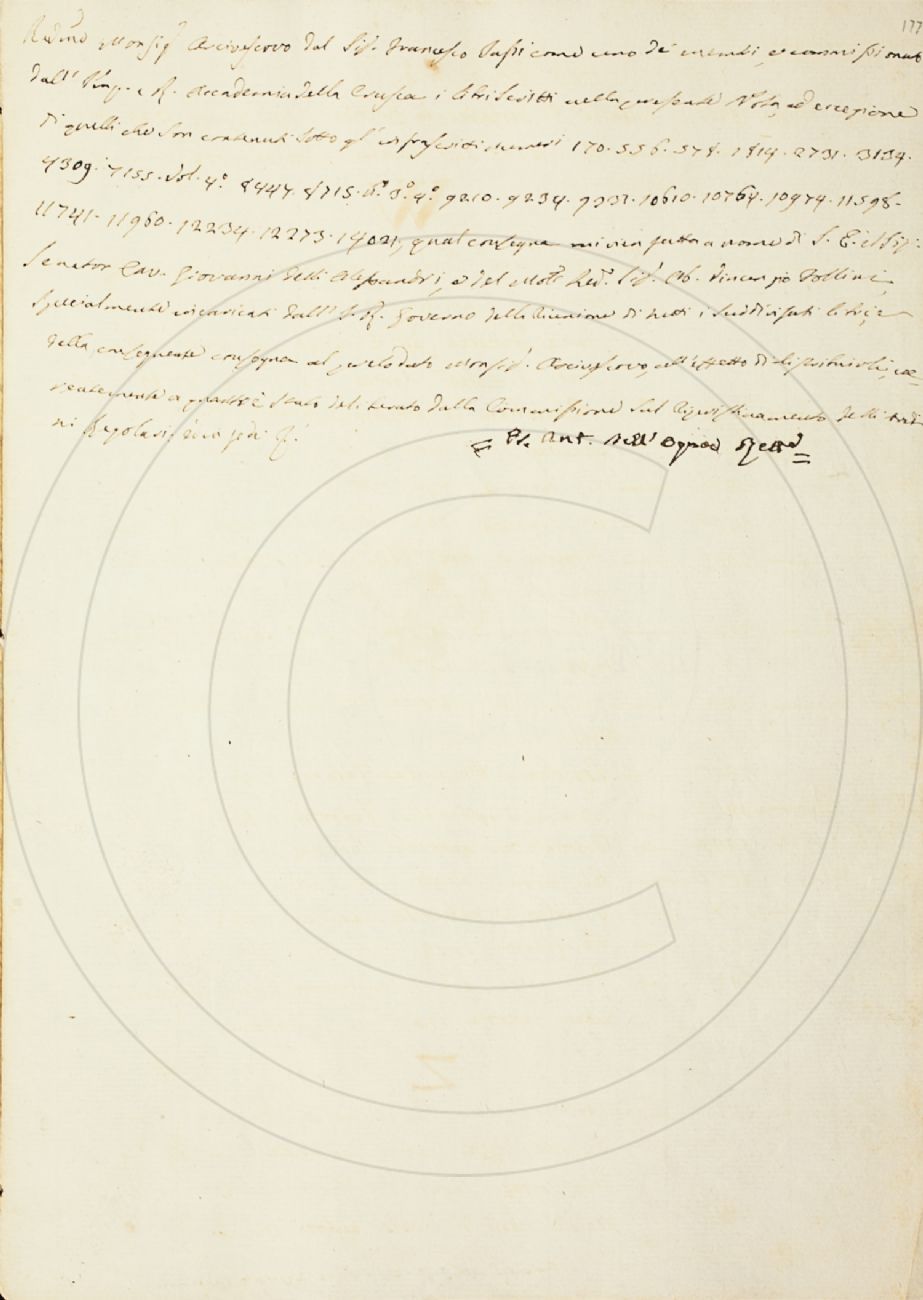 177
Rev.mo Monsig.r Arcivescovo dal Sig. Francesco Tassi come uno de' membri, e commissionato
dall' Imp. e R. Accademia della Crusca i libri scritti nella presente Nota, ad eccezione
di quelli che son contenuti sotto gl' infrascritti numeri 170. 556. 578. 1814. 2731. 3134.
4309. 7155. vol. 4.° 8447. 8715. d.° 3.° 4.° 9210. 9234. 9337. 10610. 10764. 10974. 11598.
11741. 11960. 12234. 12273. 14021, qual consegna mi vien fatta a nome di S. E. il Sig.
Senator Cav. Giovanni degli Alessandri, e del Molto Rev. Sig. Ab. Vincenzio Follini
specialmente incaricati dall' I. R. Governo della riunione di tutti i suddivisati libri, e
della conseguente consegna al prelodato Monsig. Arcivescovo, all' effetto di distribuirli, coe
rentemente a quanto è stato deliberato dalla Commissione sul ripristinamento delli Ordi
ni Regolari, in fede
= P. Ant. dell' Ogna =